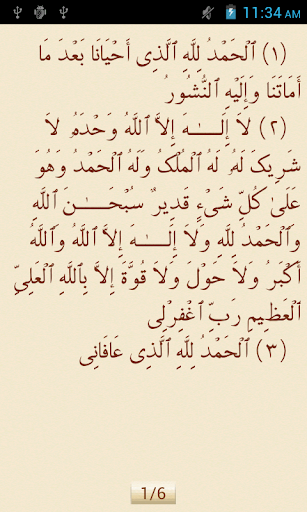 11:34 AM
(١) ٱلْحَمْدُ لِلَّهِ ٱلَّذِى أَحْيَانَا بَعْدَ مَا
أَمَاتَنَا وَإِلَيْهِ ٱلنُّشُورُ
(٢) لاَ إِلَـــٰـهَ إِلاَّ ٱللَّهُ وَحْدَهُۥ لاَ
شَرِيكَ لَهُۥ لَهُ ٱلْمُلْكُ وَلَهُ ٱلْحَمْدُ وَهُوَ
عَلَىٰ كُلِّ شَىْءٍ قَدِيرٌ سُبْحَـٰـنَ ٱللَّهِ
وَٱلْحَمْدُ لِلَّهِ وَلاَ إِلَـــٰـهَ إِلاَّ ٱللَّهُ وَٱللَّهُ
أَكْبَرُ وَلاَ حَوْلَ وَلاَ قُوَّةَ إِلاَّ بِٱللَّهِ ٱلْعَلِىِّ
ٱلْعَظِيمِ رَبِّ ٱغْفِرْلِى
(٣) ٱلْحَمْدُ لِلَّهِ ٱلَّذِى عَافَانِى
1/6